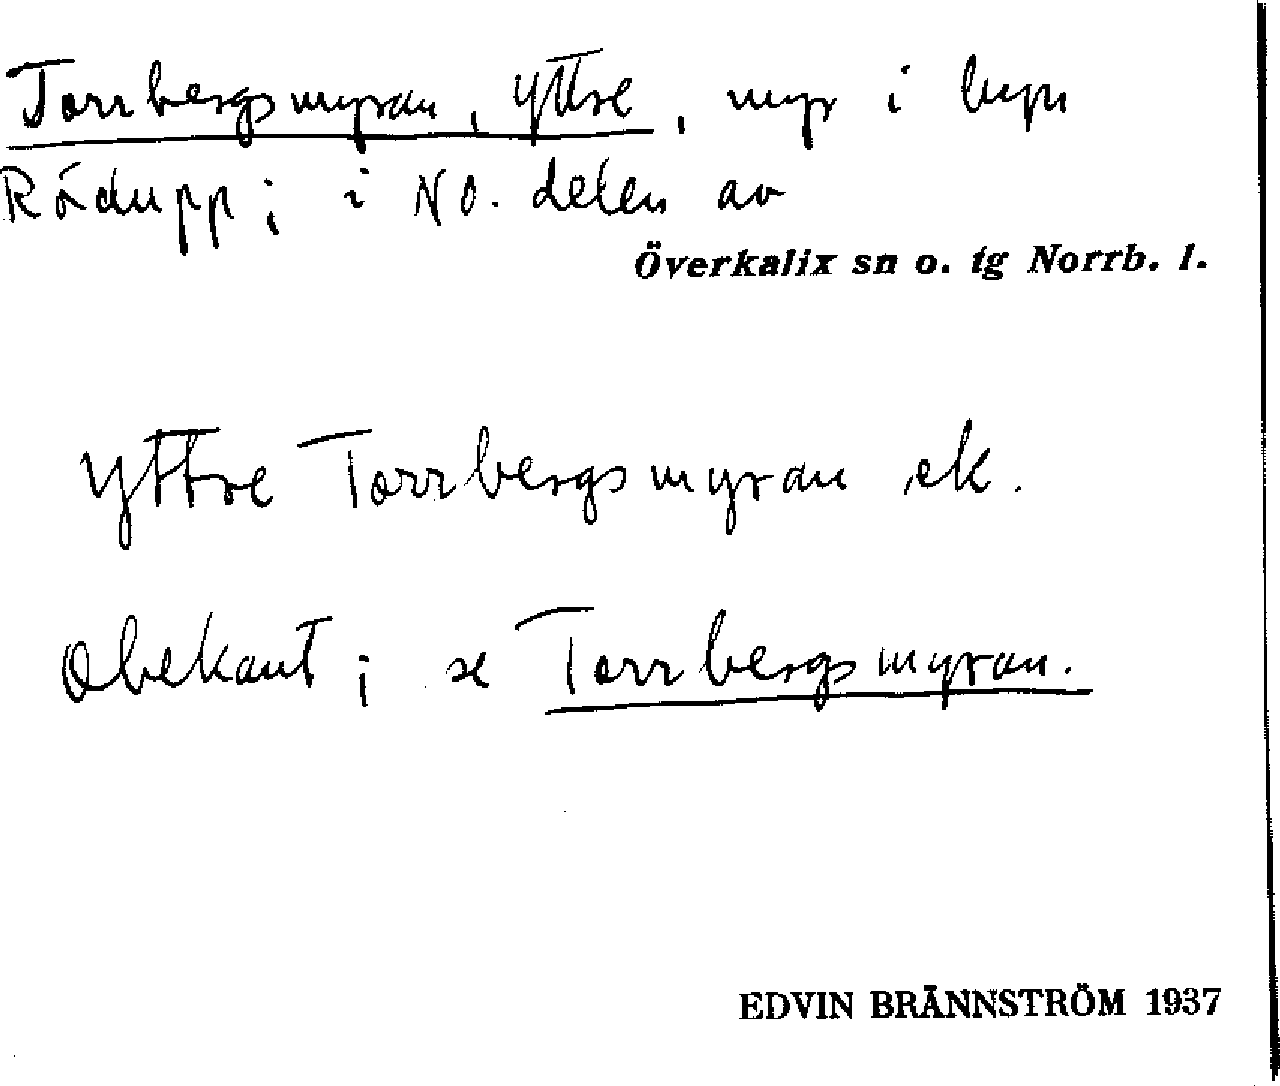 Torrbergsmyran, Yttre, myr i byn
Rödupp; i NO. delen av
Överkalix sn o. tg Norrb. l.
Yttre Torrbergsmyran ek.
Obekant; se Torrbergsmyran.
EDVIN BRÄNNSTRÖM 1937